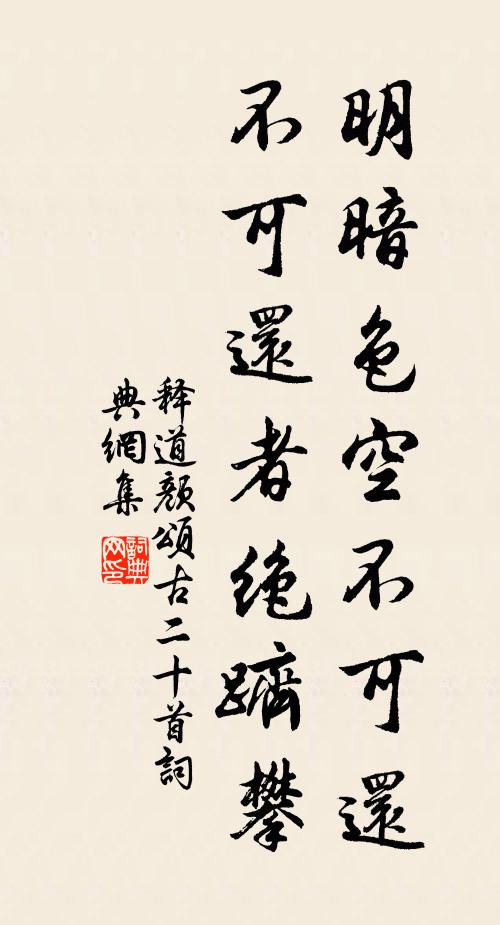 明暗色空不可還
不可還者絶躋攀
释道顏頌古二十首詞
典網集
詞典网印